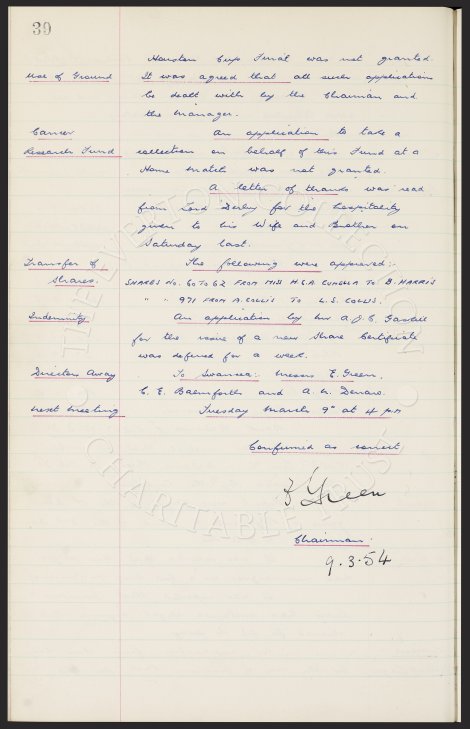 39
Houston Cup Final was not granted.
Use of Ground It was agreed that all such applications
be dealt with by the Chairman and
the Manager.
Cancer An application to take a
Research Fund collection on behalf of this Fund at a
Home Match was not granted.
A letter of thanks was read
from Lord Derby for the hospitality
given to his Wife and Brother on
Saturday last.
Transfer of The following were approved:-
Shares. SHARES No. 60 TO 62 FROM MISS H.G.A. TO B. HARRIS
" " 971 FROM A. COLLIS TO L.S. COLLIS.
Indemnity An application by Mr A.J.C.
for the issue of a new Share Certificate
was deferred for a week.
Directors Away To Swansea:- Messrs E. Green,
C. E. Balmforth and A. W. Denaro.
Next Meeting Tuesday March 9th at 4 pm
Confirmed as correct
E Green
Chairman.
9.3.54
THE EVERTON COLLECTION
CHARITABLE TRUST